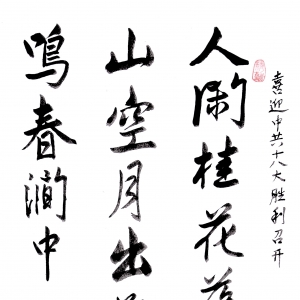 喜迎中共十八大胜利召开
人闲桂花落
山空月出
鸣春涧中